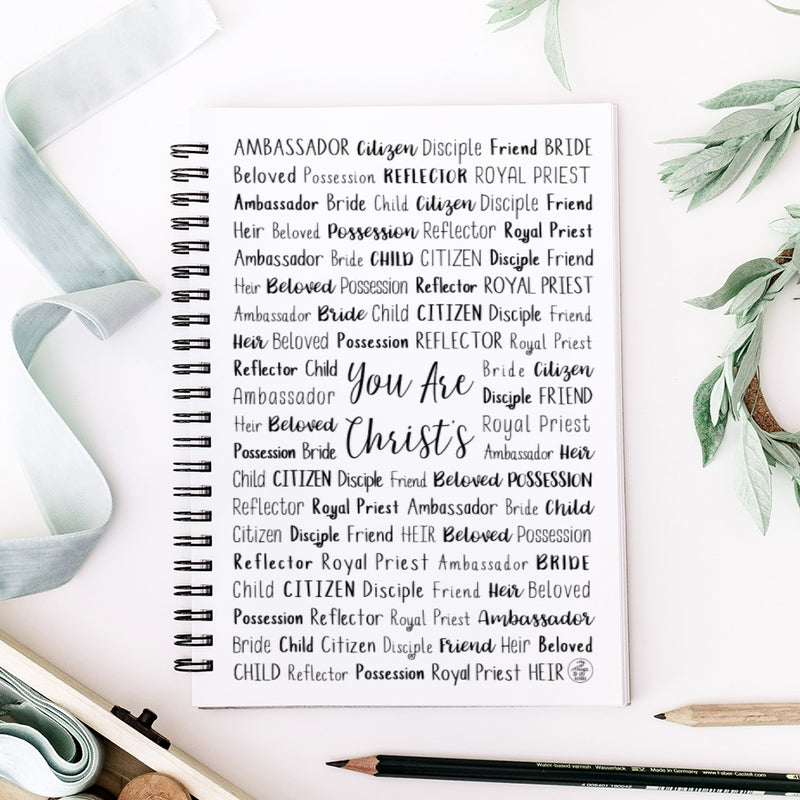 AMBASSADOR Citizen Disciple Friend BRIDE
Beloved Possession REFLECTOR ROYAL PRIEST
Ambassador Bride Child Citizen Disciple Friend
Heir Beloved Possession Reflector Royal Priest
Ambassador Bride CHILD CITIZEN Disciple Friend
Heir Beloved Possession Reflector ROYAL PRIEST
Ambassador Bride Child CITIZEN Disciple Friend
Heir Beloved Possession REFLECTOR Royal Priest
Reflector Child You Are Bride Citizen
Ambassador Disciple FRIEND
Heir Beloved Christ's Royal Priest
Possession Bride Ambassador Heir
Child CITIZEN Disciple Friend Beloved POSSESSION
Reflector Royal Priest Ambassador Bride Child
Citizen Disciple Friend HEIR Beloved Possession
Reflector Royal Priest Ambassador BRIDE
Child CITIZEN Disciple Friend Heir Beloved
Possession Reflector Royal Priest Ambassador
Bride Child Citizen Disciple Friend Heir Beloved
CHILD Reflector Possession Royal Priest HEIR
Water-based varnish Wasserlack Made in Germany www.Faber-Castell.com